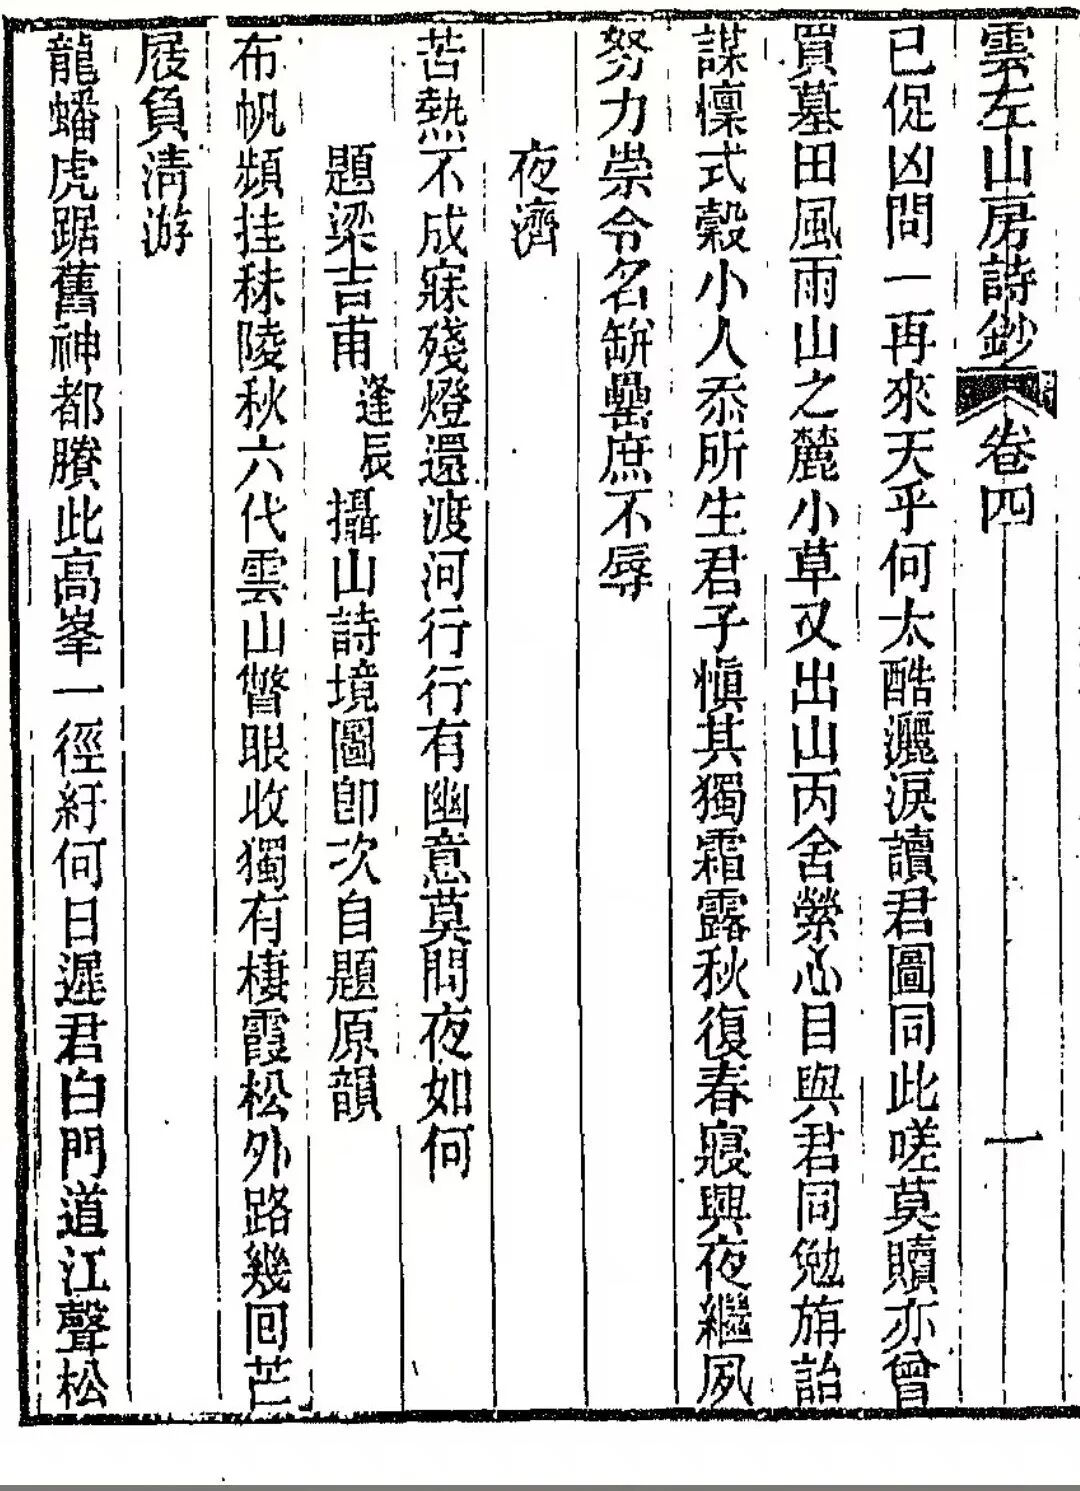 雲左山房詩鈔 卷四 一
已促凶問一再來天乎何太酷灑淚讀君圖同此嗟莫贖亦曾
買墓田風雨山之麓小草又出山丙舍縈心目與君同勉旃詒
謀懍式穀小人忝所生君子愼其獨霜露秋復春寢興夜繼夙
努力崇令名缾罍庶不辱
夜濟
苦熱不成寐殘燈還渡河行行有幽意莫問夜如何
題梁吉甫逢辰攝山詩境圖卽次自題原韻
布帆頻挂秣陵秋六代雲山瞥眼收獨有棲霞松外路幾回芒
屐負淸游
龍蟠虎踞舊神都賸此高峯一徑紆何日遲君白門道江聲松